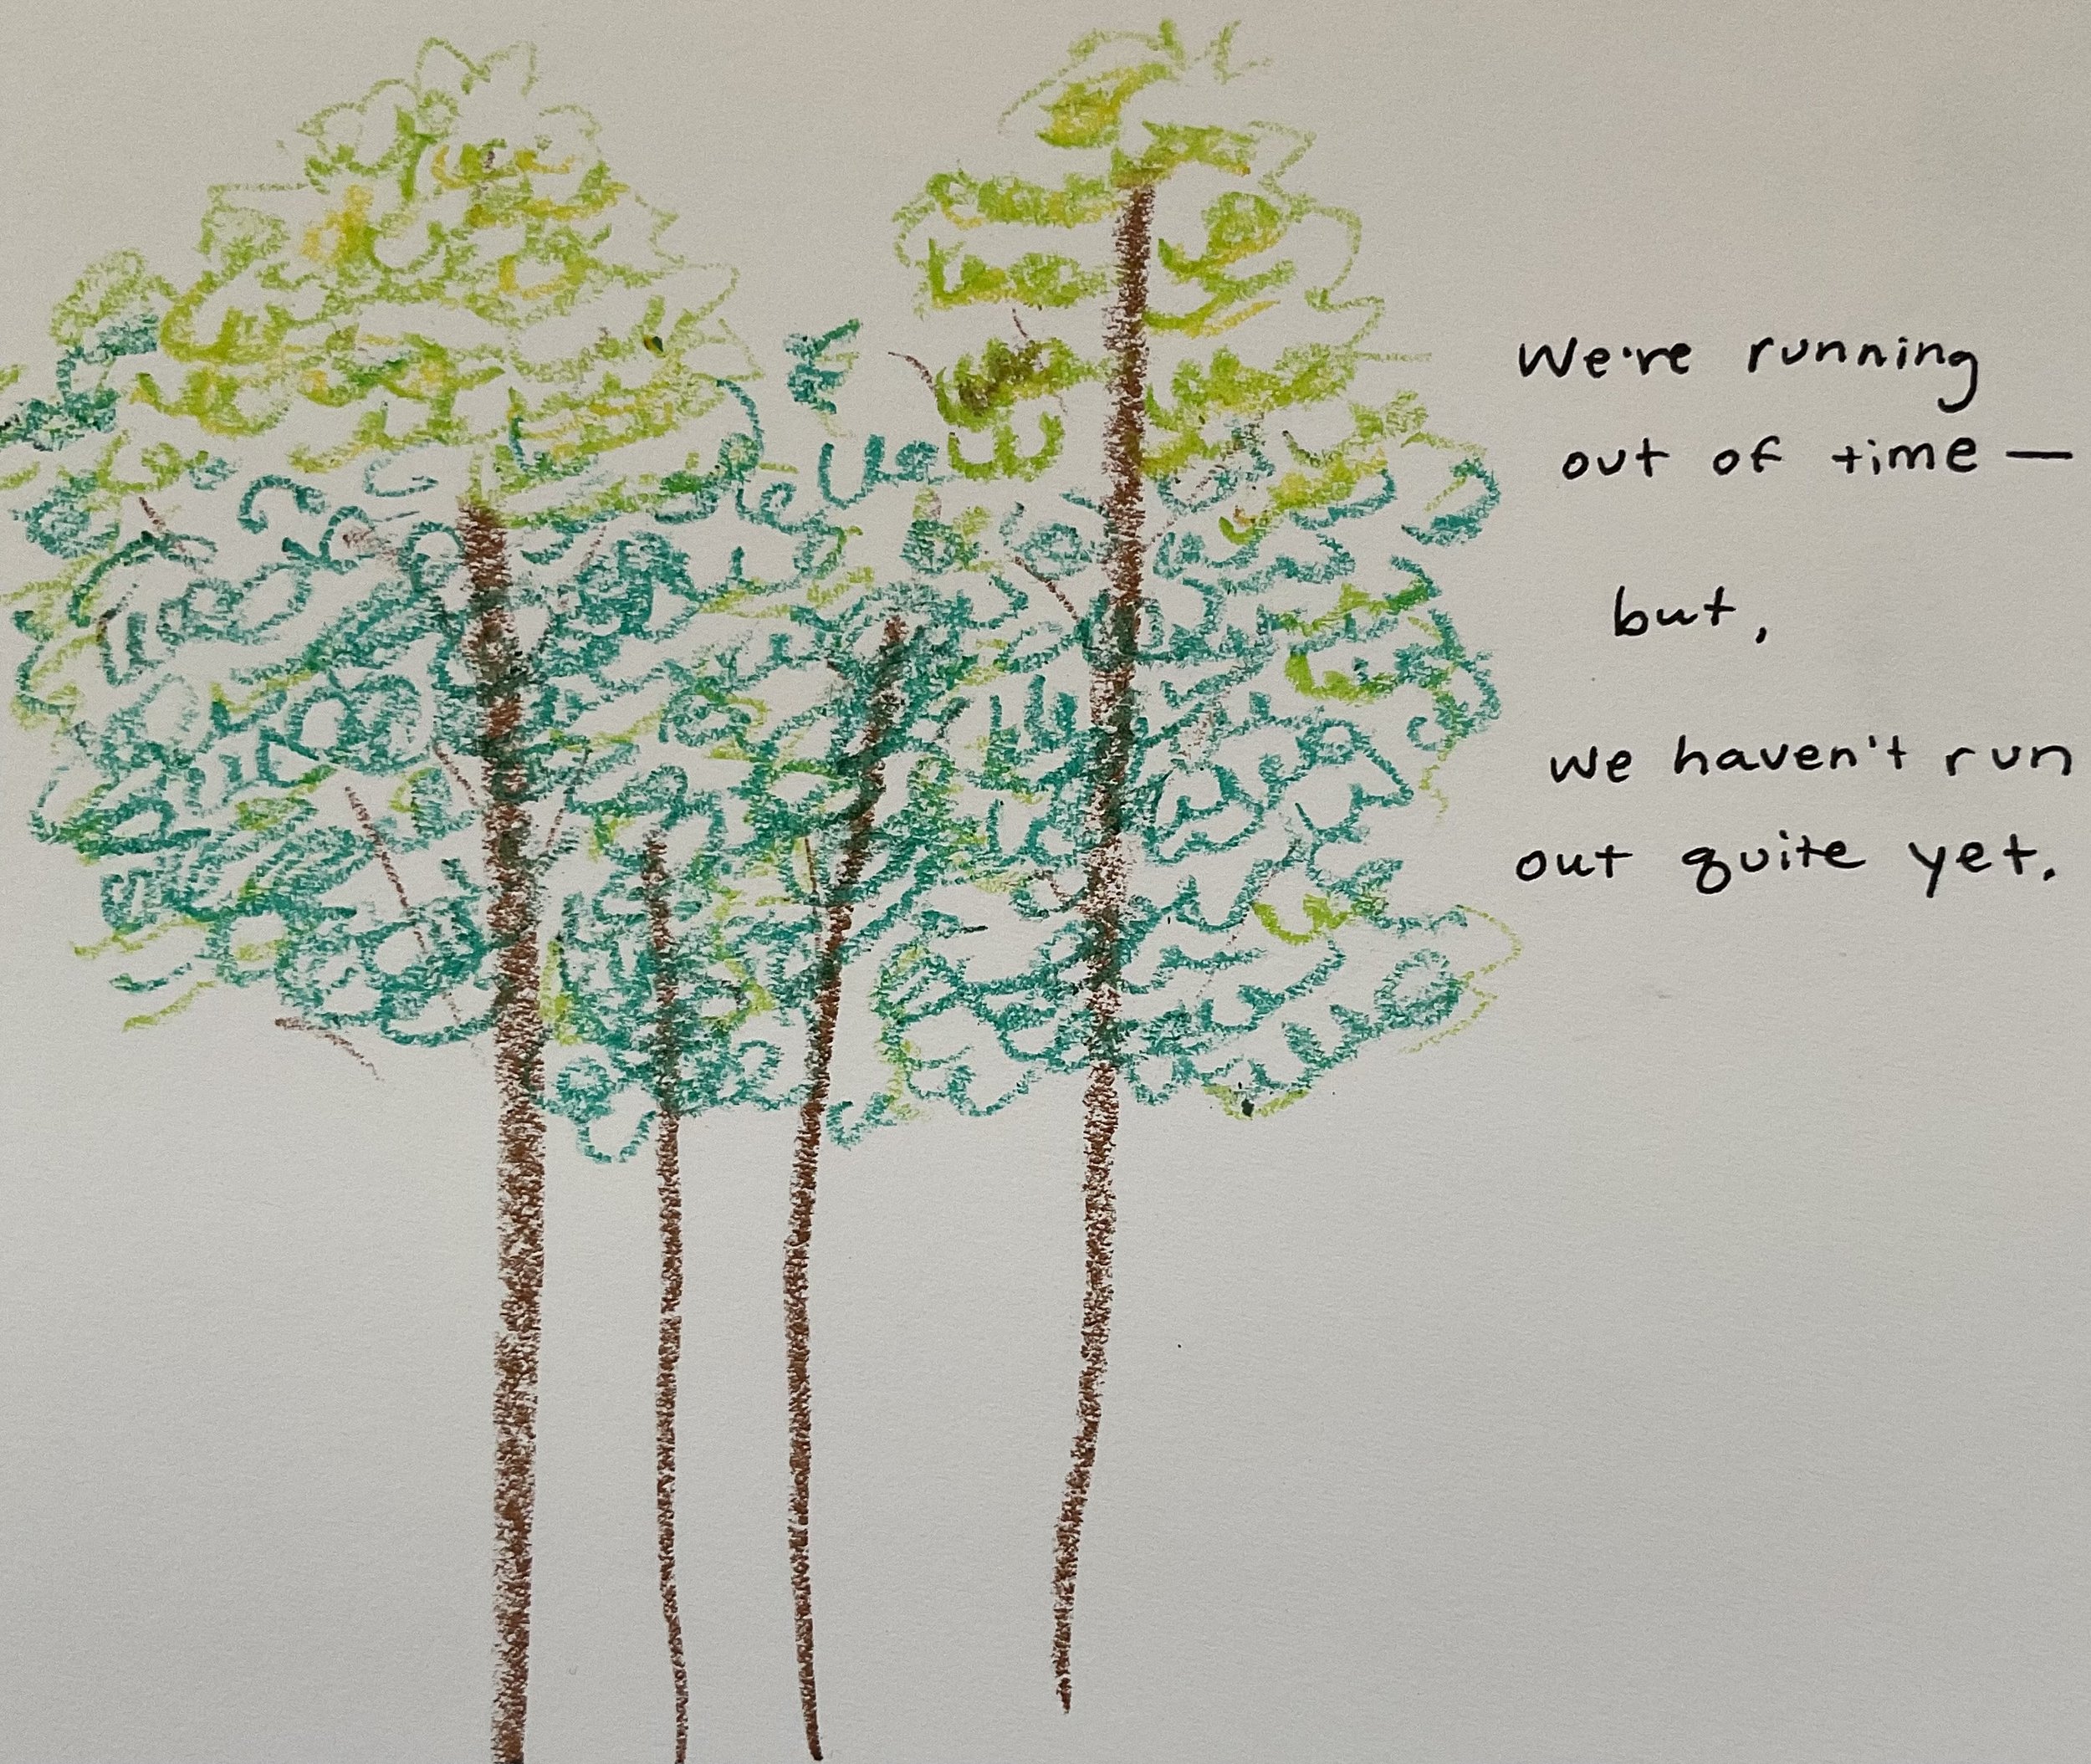 We're running
out of time —
but,
we haven't run
out quite yet.